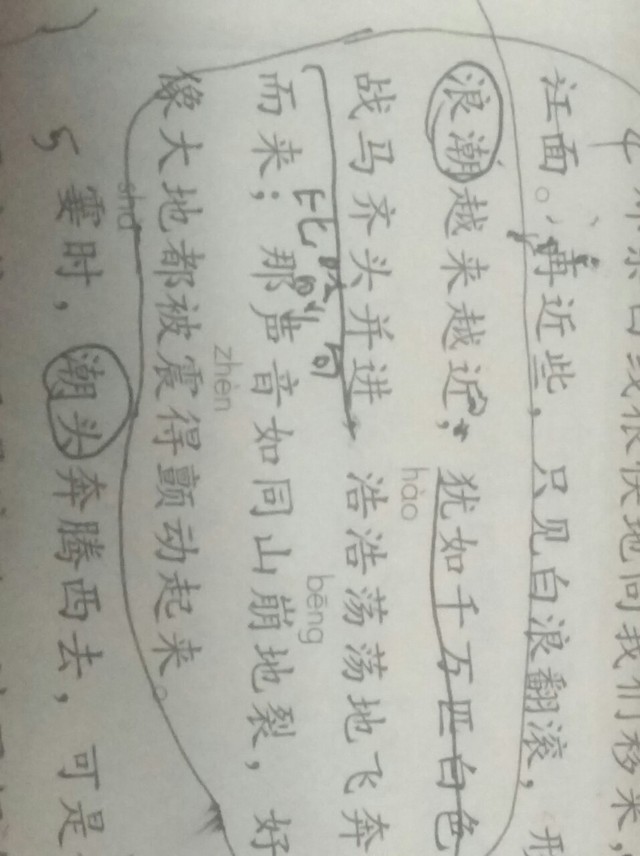 4 那条白线很快地向我们移来，
江面。再近些，只见白浪翻滚，形
浪潮越来越近，犹如千万匹白色
hào
战马齐头并进，浩浩荡荡地飞奔
比喻句
bēng
而来；那声音如同山崩地裂，好
zhèn
像大地都被震得颤动起来。
shà
5 霎时，潮头奔腾西去，可是